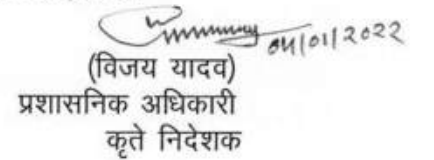 04/01/2022
(विजय यादव)
प्रशासनिक अधिकारी
कृते निदेशक